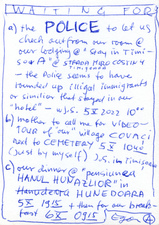 WAITING FOR
a) the POLICE to let us
check out from our room @
our lodging @ Gen in Timi-
soara @ STRADA MIRO COSTIN 4
Timisoara
- the Police seems to have
rounded up illegal immigrants
or similar that stayed in our
"hotel" - w) 5. 5X 2023 10"
b) mother to call me for VIDEO-
TOUR of "our" village COVACI
and to CEMETERY 5X 1040
(just by myself) ). 5. in Timisoara
c) our dinner @ "pensiunea
HANUL HUNAZILOR" in
HUNEDOARA
5X 1915 + then for our break-
fast 6X 0915